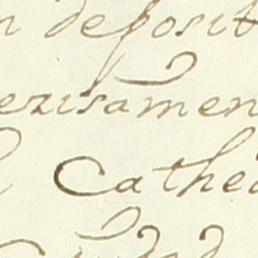 n deposit
ezisamen
Cathe